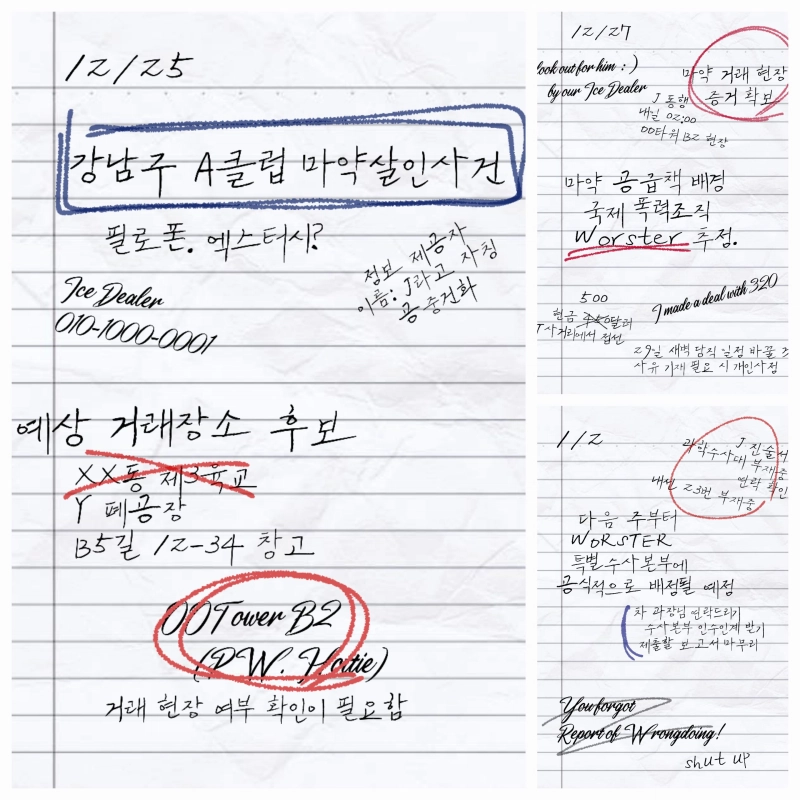 12/25
강남구 A클럽 마약살인사건
필로폰. 엑스터시?
정보 제공자
이름: J라고 자칭
공중전화
Ice Dealer
010-1000-0001
예상 거래장소 후보
XX동 제3육교
Y 폐공장
B5길 12-34 창고
OOTower B2
(P.W. Hatie)
거래 현장 여부 확인이 필요함
12/27
look out for him :)
by our Ice Dealer
마약 거래 현장
증거 확보
J 동행
내일 02:00
OO타워 B2 현장
마약 공급책 배경
국제 폭력조직
Worster 추정.
I made a deal with 320
500
현금 달러
T사거리에서 접선
29일 새벽 당직 일정 바꿀 것
사유 기재 필요 시 개인사정
1/2
J 진술서
과학수사대 부재중
연락 확인
내선 23번 부재중
다음 주부터
WORSTER
특별수사본부에
공식적으로 배정될 예정
차 과장님 연락드리기
수사본부 인수인계 받기
제출할 보고서 마무리
You forgot
Report of Wrongdoing!
shut up